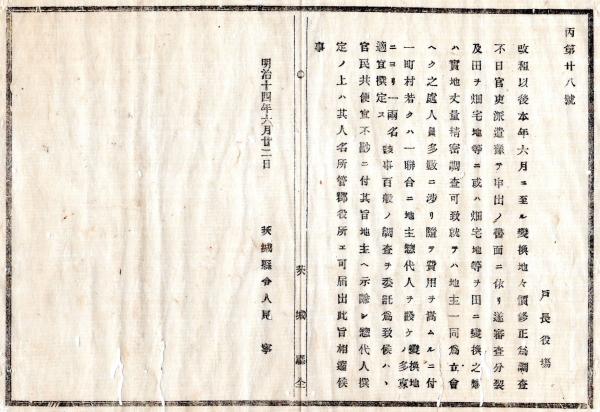 丙第廿八號
戸長役場
改租以後本年六月ニ至ル變換地々價修正爲調査
不日官吏派遣豫テ申出ノ書面ニ依リ逐審査分裂
及田ヲ畑宅地等ニ或ハ畑宅地等ヲ田ニ變換之類
ハ實地丈量精密調査可致就テハ地主一同爲立會
ヘク之處人員多數ニ渉リ隨テ費用ヲ嵩ムルニ付
一町村若クハ一聯合ニ地主惣代人ヲ設ケ變換地ノ多寡
ニヨリ一兩名該事百般ノ調査ヲ委託爲致候ハヽ
適宜撰定ス
官民共便宜不尠ニ付其旨地主ヘ示諭シ惣代人撰
定ノ上ハ其人名所管郡役所エ可届出此旨相達候
事
明治十四年六月廿二日
茨城縣令人見寧
茨城縣令